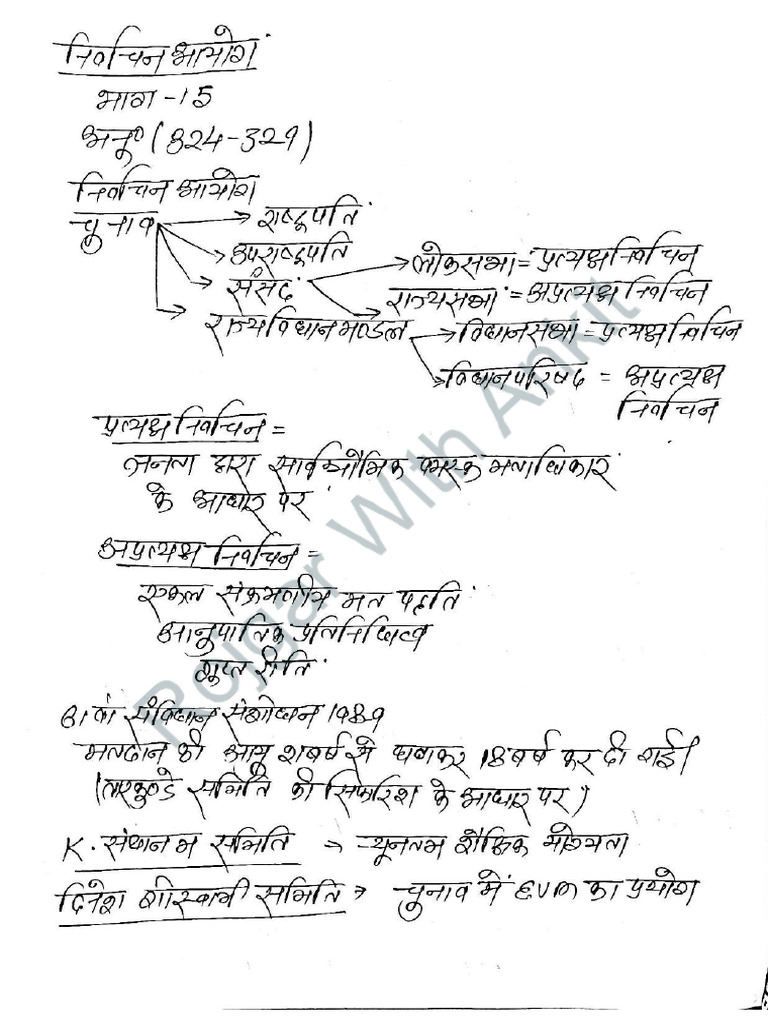 निर्वाचन आयोग
भाग -15
अनु० (324-329)
निर्वाचन आयोग
चुनाव → राष्ट्रपति
→ उपराष्ट्रपति
→ संसद → लोकसभा = प्रत्यक्ष निर्वाचन
→ राज्यसभा = अप्रत्यक्ष निर्वाचन
→ राज्य विधान मण्डल → विधानसभा = प्रत्यक्ष निर्वाचन
→ विधान परिषद = अप्रत्यक्ष
निर्वाचन
प्रत्यक्ष निर्वाचन =
जनता द्वारा सार्वभौमिक वयस्क मताधिकार
के आधार पर
अप्रत्यक्ष निर्वाचन =
एकल संक्रमणीय मत पद्दति
आनुपातिक प्रतिनिधित्व
गुप्त रीति
61 वां संविधान संशोधन 1989
मतदान की आयु वर्ष से घटाकर 18 वर्ष कर दी गई।
(तारकुण्डे समिति की सिफारिश के आधार पर)
K. संथानम समिति → न्यूनतम शैक्षिक योग्यता
दिनेश गोस्वामी समिति → चुनाव में EVM का प्रयोग
Rojgar With Ankit